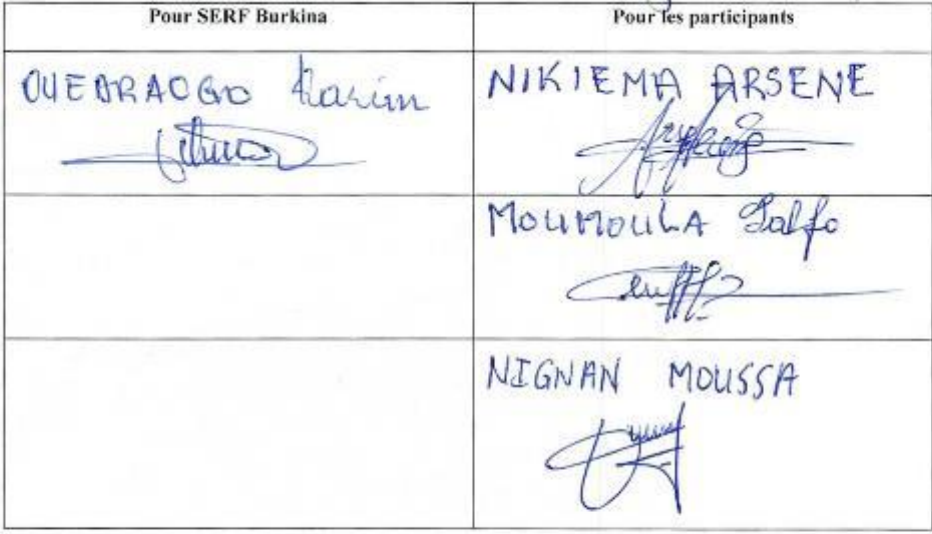 Pour SERF Burkina
Pour les participants
OUEDRAOGO Karim
NIKIEMA ARSENE
MOUMOULA Salfo
NIGNAN MOUSSA